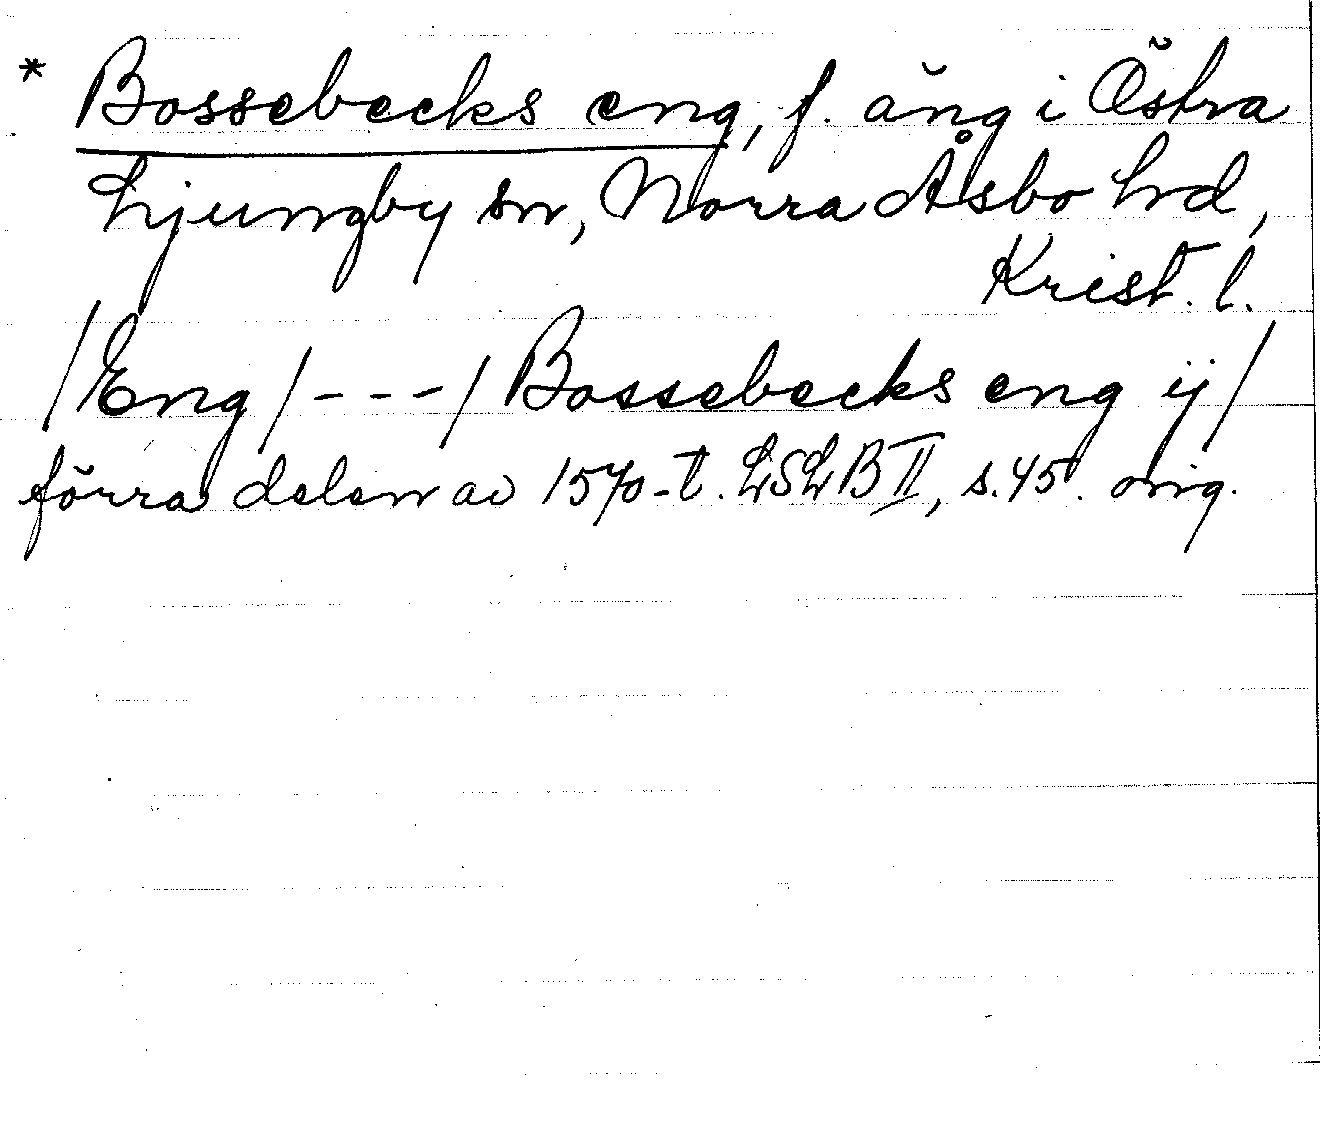 * Bossebecks eng, f. äng i Östra
Ljungby sn, Norra Åsbo hd,
Krist. l.
/Eng/---/Bossebecks eng ij/
förra delen av 1570-t. LSLB II, s.45. orig.